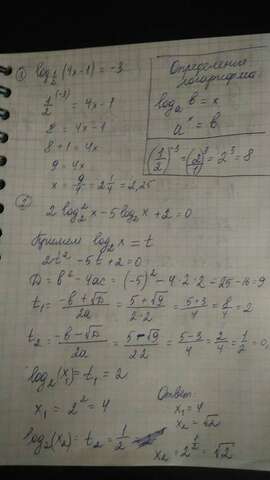 ① log_{1/2}(4x-1) = -3
(1/2)^{(-3)} = 4x-1
8 = 4x-1
8+1 = 4x
9 = 4x
x = 9/4 = 2 1/4 = 2,25
Определение
логарифма:
log_a b = x
a^x = b
(1/2)^{-3} = (2/1)^3 = 2^3 = 8
②
2 log_2^2 x - 5 log_2 x + 2 = 0
Примем log_2 x = t
2t^2 - 5t + 2 = 0
D = b^2 - 4ac = (-5)^2 - 4·2·2 = 25-16=9
t_1 = (-b+√D)/2a = (5+√9)/2·2 = (5+3)/4 = 8/4 = 2
t_2 = (-b-√D)/2a = (5-√9)/2·2 = (5-3)/4 = 2/4 = 1/2 = 0,
log_2(x_1) = t_1 = 2
x_1 = 2^2 = 4
Ответ:
x_1 = 4
x_2 = √2
log_2(x_2) = t_2 = 1/2
x_2 = 2^{1/2} = √2